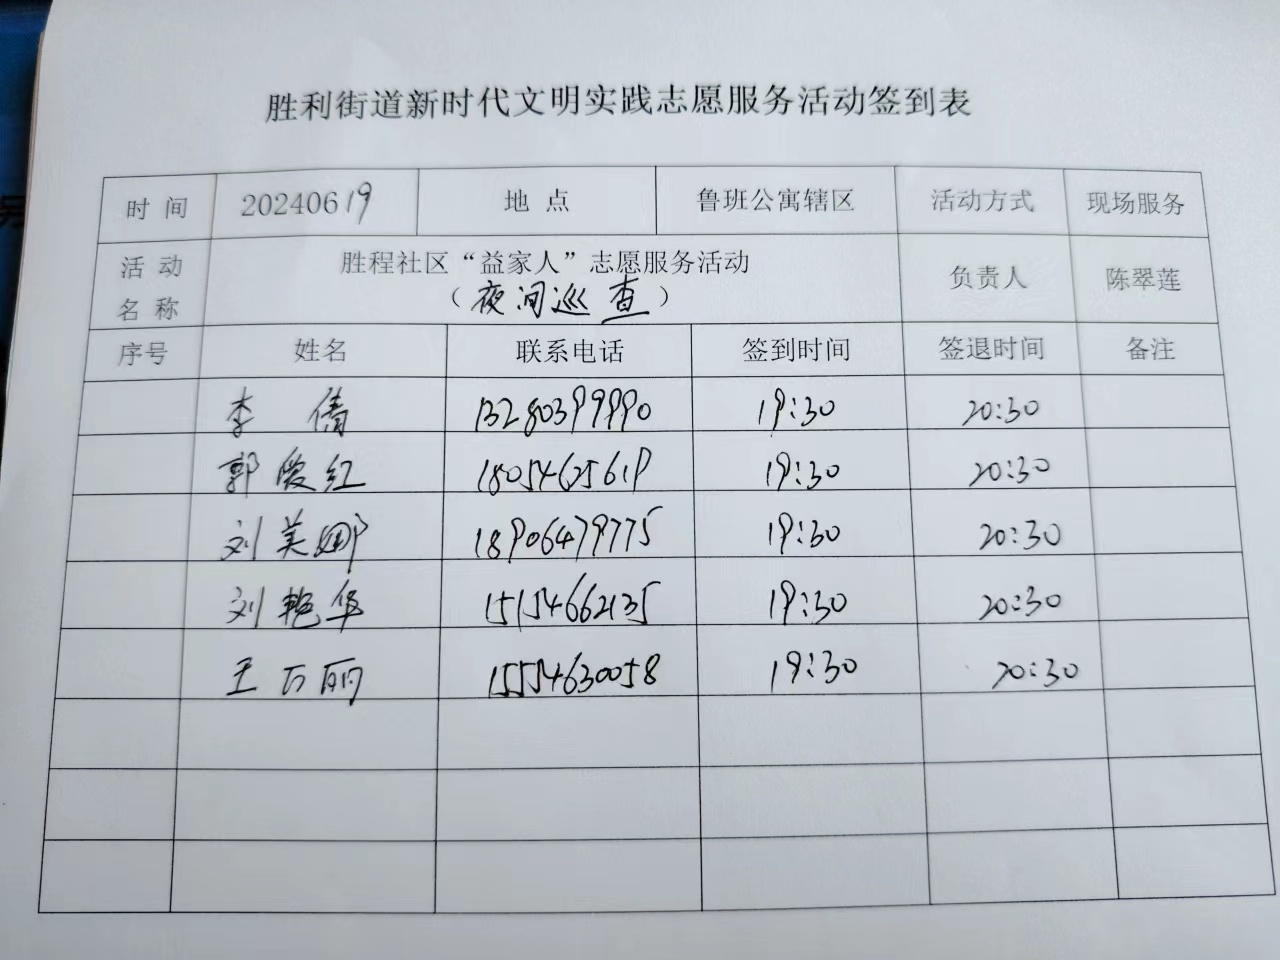 胜利街道新时代文明实践志愿服务活动签到表
时间 20240619 地点 鲁班公寓辖区 活动方式 现场服务
活动名称 胜程社区“益家人”志愿服务活动 负责人 陈翠莲
（夜间巡查）
序号 姓名 联系电话 签到时间 签退时间 备注
李倩 13280399990 19:30 20:30
郭爱红 18054625619 19:30 20:30
刘美娜 18906479775 19:30 20:30
刘艳华 15154662135 19:30 20:30
王万丽 15554630058 19:30 20:30